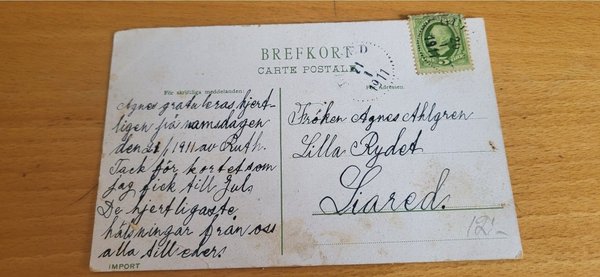 BREFKORT
CARTE POSTALE
För skriftliga meddelanden:
För Adressen.
Agnes gratuleras hjert-
ligen på namsdagen
den 21/1 1911 av Ruth.
Tack för kortet som
jag fick till Juls
De hjertligaste
hälsningar från oss
alla till eders.
Fröken Agnes Ahlgren
Lilla Rydet
Liared.
21
1
1911
5
12:-
IMPORT